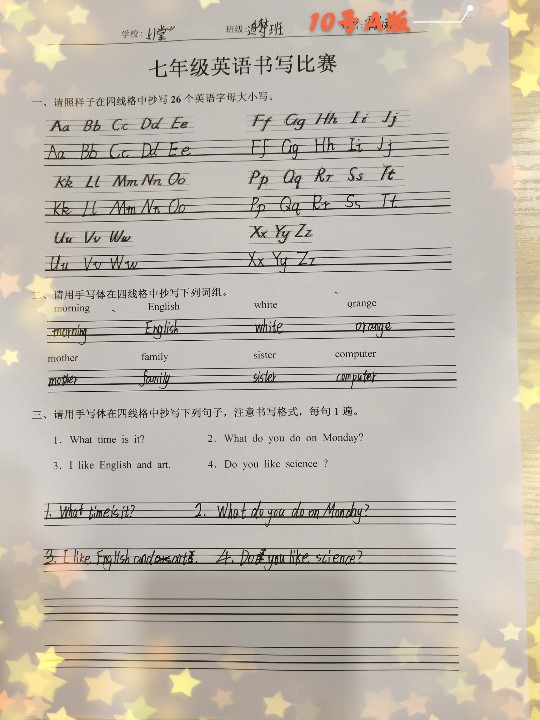 10号A版
学校: 班级:追梦班
七年级英语书写比赛
一、请照样子在四线格中抄写 26 个英语字母大小写。
Aa Bb Cc Dd Ee Ff Gg Hh Ii Jj
Aa Bb Cc Dd Ee Ff Gg Hh Ii Jj
Kk Ll Mm Nn Oo Pp Qq Rr Ss Tt
Kk Ll Mm Nn Oo Pp Qq Rr Ss Tt
Uu Vv Ww Xx Yy Zz
Uu Vv Ww Xx Yy Zz
二、请用手写体在四线格中抄写下列词组。
morning English white orange
morning English white orange
mother family sister computer
mother family sister computer
三、请用手写体在四线格中抄写下列句子，注意书写格式，每句 1 遍。
1. What time is it? 2. What do you do on Monday?
3. I like English and art. 4. Do you like science ?
1. What time is it? 2. What do you do on Monday?
3. I like English and art. 4. Do you like science?